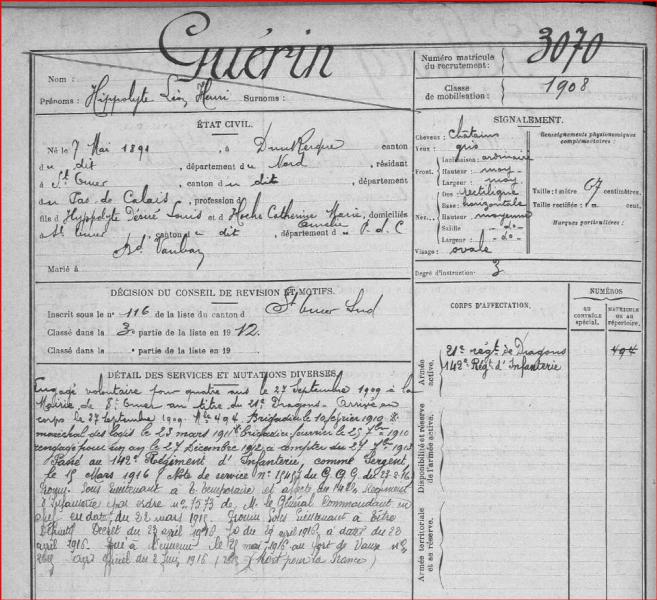 Guérin
Nom :
Prénoms : Hippolyte Léon Henri Surnoms :
Numéro matricule du recrutement : 3070
Classe de mobilisation : 1908
ÉTAT CIVIL.
Né le 7 Mai 1891, à Dunkerque canton
du dit, département du Nord, résidant
à St Omer, canton du dit, département
du Pas de Calais, profession d
fils d'Hippolyte Désiré Louis et Roche Catherine Marie, domiciliés
Aurélie
à St Omer, canton du dit, département du P. d. C
Bd. Vauban
Marié à
SIGNALEMENT.
Cheveux : châtains
Yeux : gris
Front. Inclinaison : ordinaire
Hauteur : moy
Largeur : moy
Nez. Dos : rectiligne
Base : horizontale
Hauteur : moyenne
Saillie - do -
Largeur : - do -
Visage : ovale
Renseignements physionomiques complémentaires :
Taille : 1 mètre 67 centimètres.
Taille rectifiée : 1 m. cent.
Marques particulières :
Degré d'instruction : 3
DÉCISION DU CONSEIL DE REVISION ET MOTIFS.
Inscrit sous le n° 116 de la liste du canton d St Omer Sud
Classé dans la 3e partie de la liste en 1912.
Classé dans la partie de la liste en 19
CORPS D'AFFECTATION.
NUMÉROS
AU CONTRÔLE spécial.
MATRICULE OU AU répertoire.
Armée active.
21e régt de Dragons 494
142e Régt d'Infanterie
Disponibilité et réserve de l'armée active.
Armée territoriale et sa réserve.
DÉTAIL DES SERVICES ET MUTATIONS DIVERSES
Engagé volontaire pour quatre ans le 27 Septembre 1909 à la
Mairie de St Omer au titre du 21e Dragons. Arrivé au
corps le 27 Septembre 1909. Mle 494. Brigadier le 10 février 1910.
maréchal des logis le 23 mars 1911. brigadier fourrier le 25 7bre 1910
rengagé pour un an le 27 Décembre 1912 à compter du 27 7bre 1913
Passé au 142e Régiment d'Infanterie, comme Sergent
le 15 Mars 1916 (Note de service n° du G.Q.G. du 23-2-16)
Promu Sous lieutenant à t. temporaire et affecté au 142e Régiment
d'Infanterie par ordre n° 1573 de M. le Général Commandant en
chef en date du 22 mars 1916. Promu Sous Lieutenant à titre
définitif Décret du 23 avril 1916 Jo du 29 avril 1916 à dater du 23
avril 1916. Tué à l'ennemi le 21 mai 1916 au fort de Vaux
Avis officiel du 2 Juin 1916 (Mort pour la France)